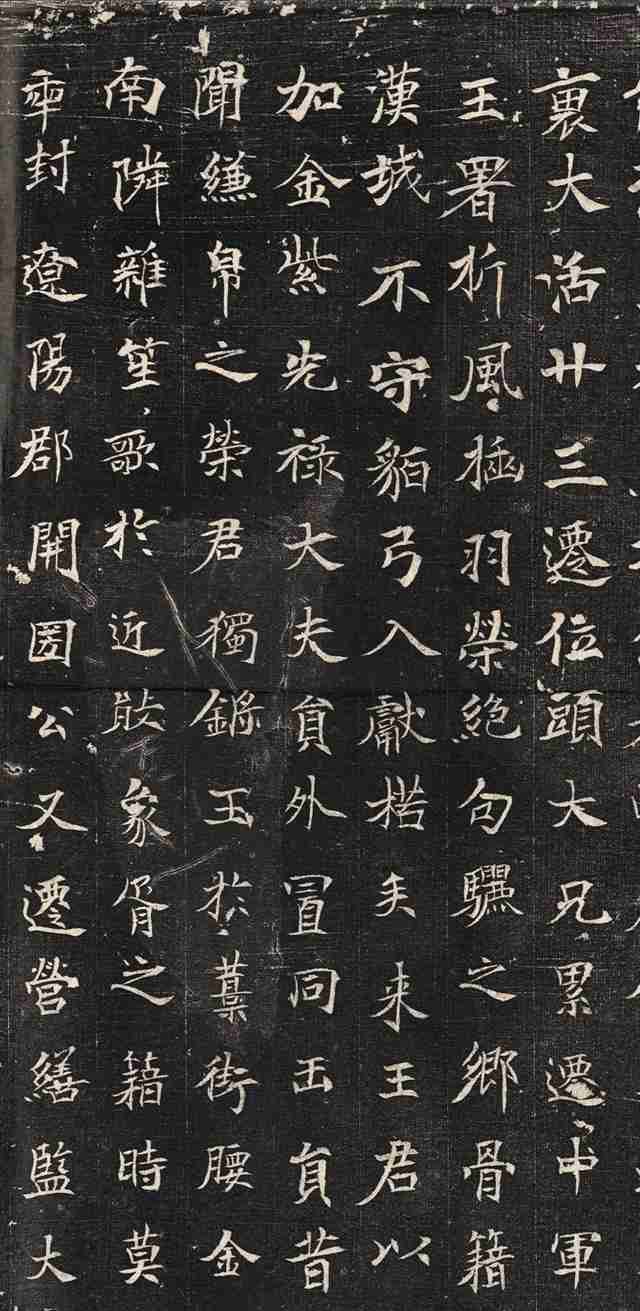 裏大活廿三遷位頭大兄累遷中軍
王署折風插羽榮絕句驪之鄉骨籍
漢城不守貊弓入獻楛矢来王君以
加金紫光祿大夫員外置同𠙺員昔
聞縑帛之榮君獨鏘玉於藁街腰金
南隣雜笙歌於近象胥之籍時莫
封遼陽郡開圀公又遷營繕監大